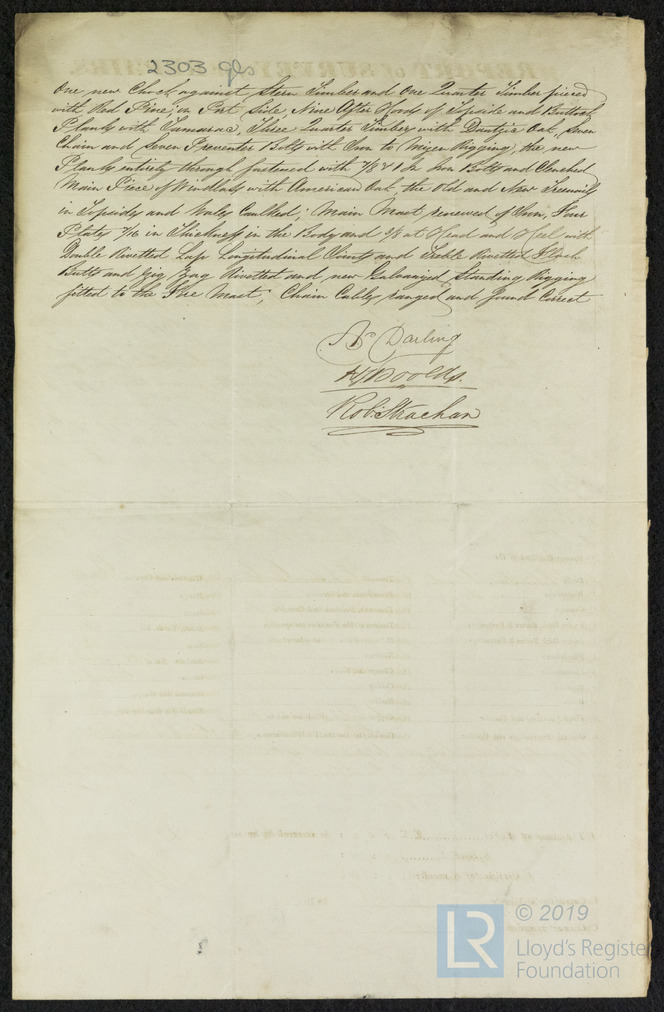 2303 gls
One new Chock against Stern Timber and One Quarter Timber pieced
with Red Pine; in Port Side, Nine After Hoods of Topside and Buttock
Planks with Tamarac, Three Quarter Timbers with Dantzic Oak, Seven
Chain and Seven Preventer Bolts with Iron to Mizen Rigging, the new
Planks entirely through fastened with 7/8 & 1 In Iron Bolts and Clenched
Main Piece of Windlass with American Oak the Old and New Treenails
in Topsides and Wales Caulked; Main Mast renewed of Iron, Four
Plates 7/16 in Thickness in the Body and 3/8 at Head and Heel with
Double Rivetted Lap Longitudinal Joints and Treble Rivetted
Butts and Zig Zag Rivetted and new Galvanized Standing Rigging
fitted to the Fore Mast; Chain Cables ranged and found Correct
Darling
H J Boolds.
Rob. Strachan
LR
© 2019
Lloyd's Register
Foundation